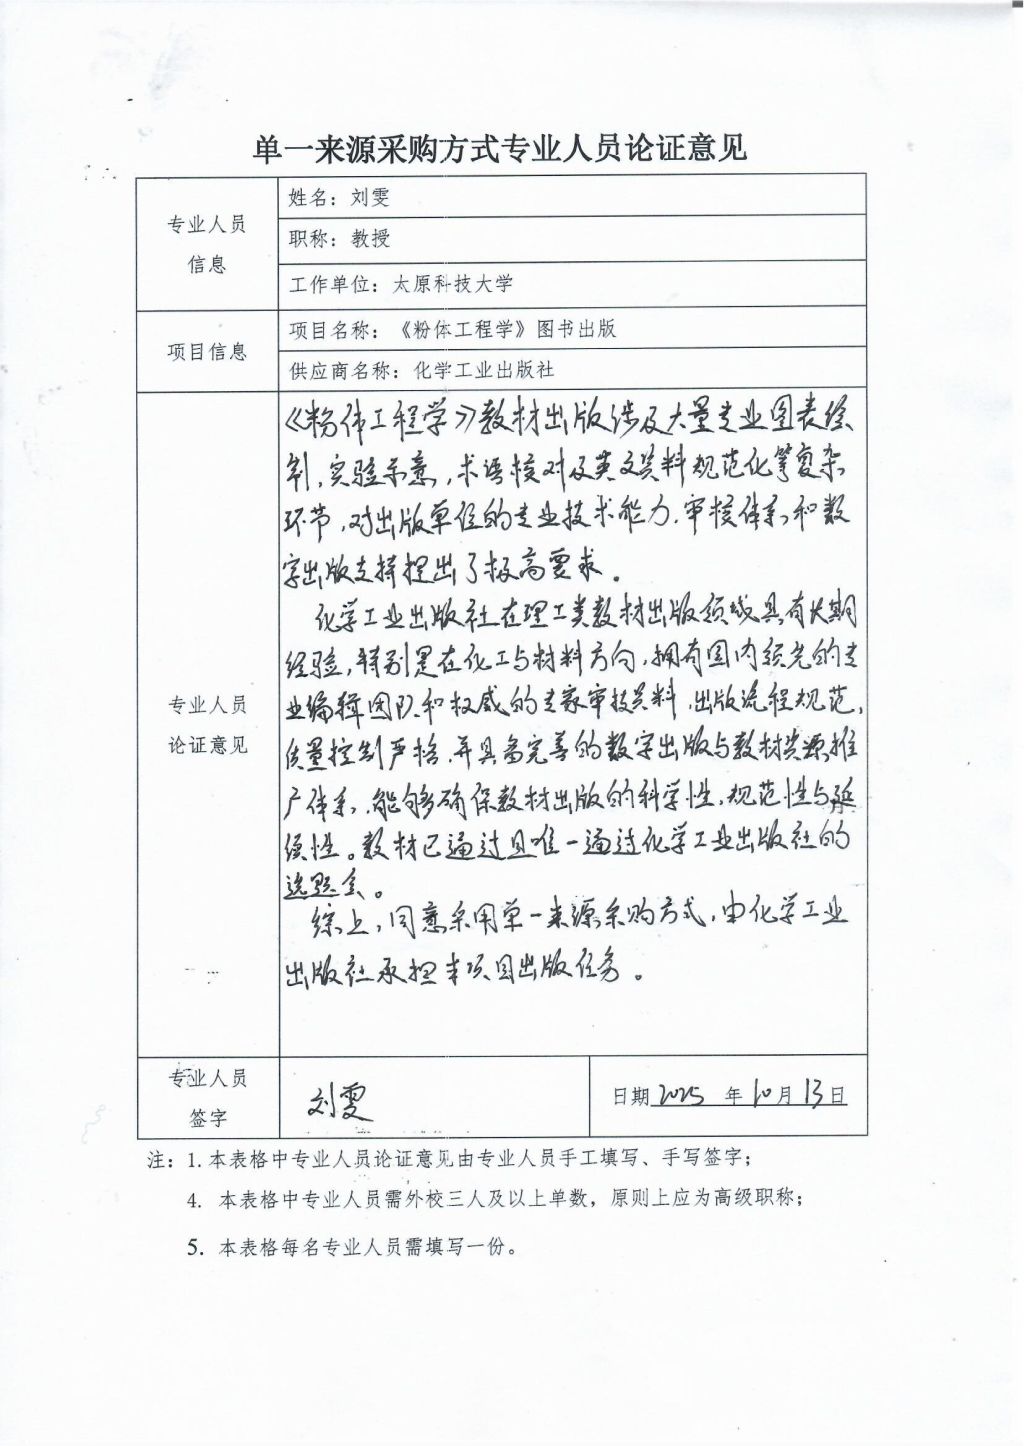 单一来源采购方式专业人员论证意见
专业人员
信息
姓名：刘雯
职称：教授
工作单位：太原科技大学
项目信息
项目名称：《粉体工程学》图书出版
供应商名称：化学工业出版社
专业人员
论证意见
《粉体工程学》教材出版涉及大量专业图表绘
制，实验示意，术语核对及英文资料规范化等复杂
环节，对出版单位的专业技术能力，审核体系和数
字出版支持提出了极高要求。
化学工业出版社在理工类教材出版领域具有长期
经验，特别是在化工与材料方向，拥有国内领先的专
业编辑团队和权威的专家审校资料，出版流程规范，
质量控制严格，并具备完善的数字出版与教材资源推
广体系，能够确保教材出版的科学性，规范性与延
续性。教材已通过且唯一通过化学工业出版社的
选题会。
综上，同意采用单一来源采购方式，由化学工业
出版社承担本项目出版任务。
专业人员
签字
刘雯
日期2025年10月13日
注：1.本表格中专业人员论证意见由专业人员手工填写、手写签字；
4. 本表格中专业人员需外校三人及以上单数，原则上应为高级职称；
5. 本表格每名专业人员需填写一份。